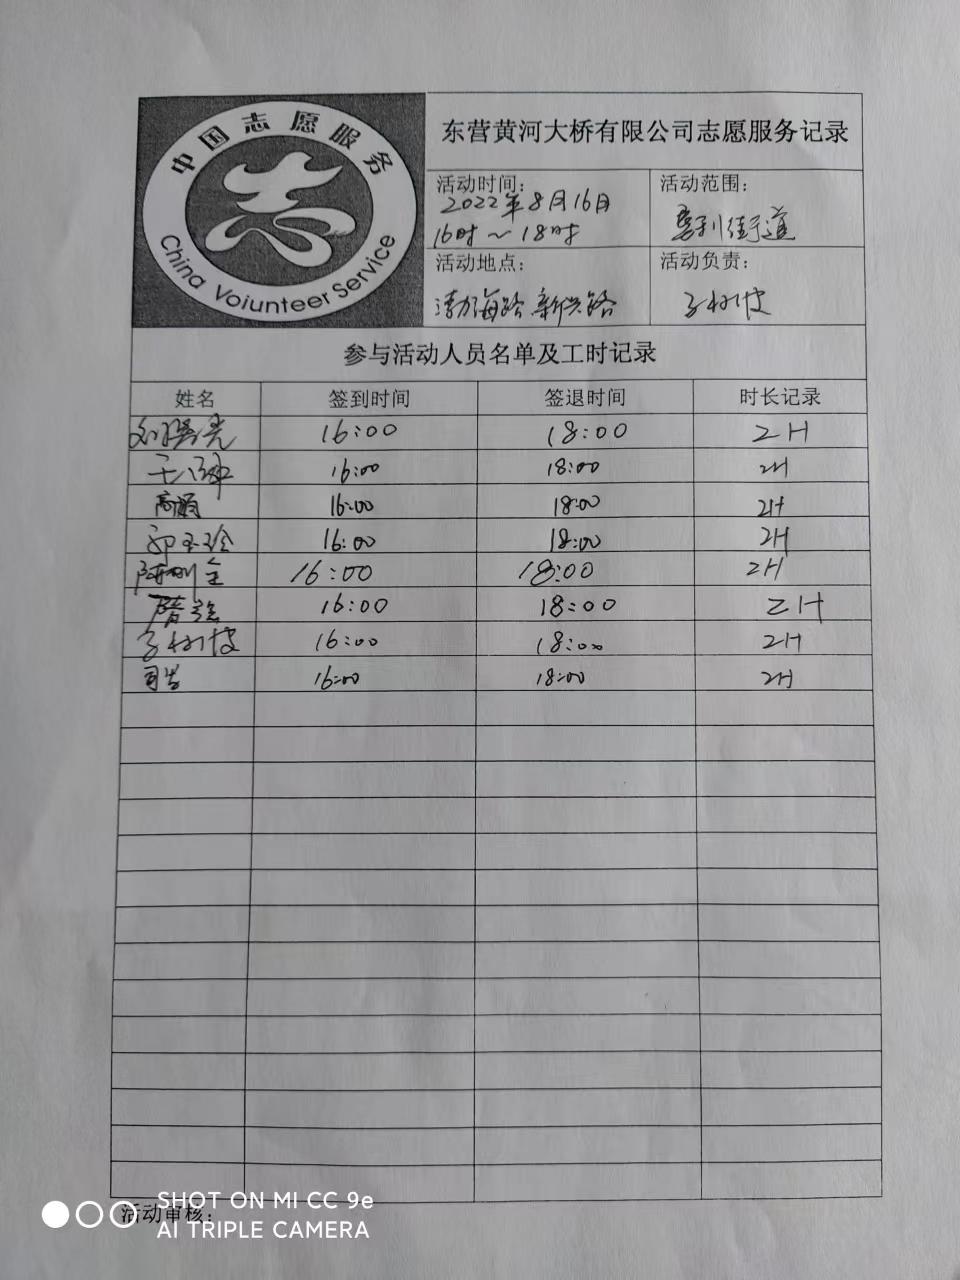 中国志愿服务
China Voiunteer Service
东营黄河大桥有限公司志愿服务记录
活动时间：
2022年8月16日
16时～18时
活动范围：
垦利街道
活动地点：
渤海路 新兴路
活动负责：
参与活动人员名单及工时记录
姓名 签到时间 签退时间 时长记录
16:00 18:00 2H
16:00 18:00 2H
16:00 18:00 2H
16:00 18:00 2H
16:00 18:00 2H
16:00 18:00 2H
16:00 18:00 2H
16:00 18:00 2H
活动审核：
SHOT ON MI CC 9e
AI TRIPLE CAMERA